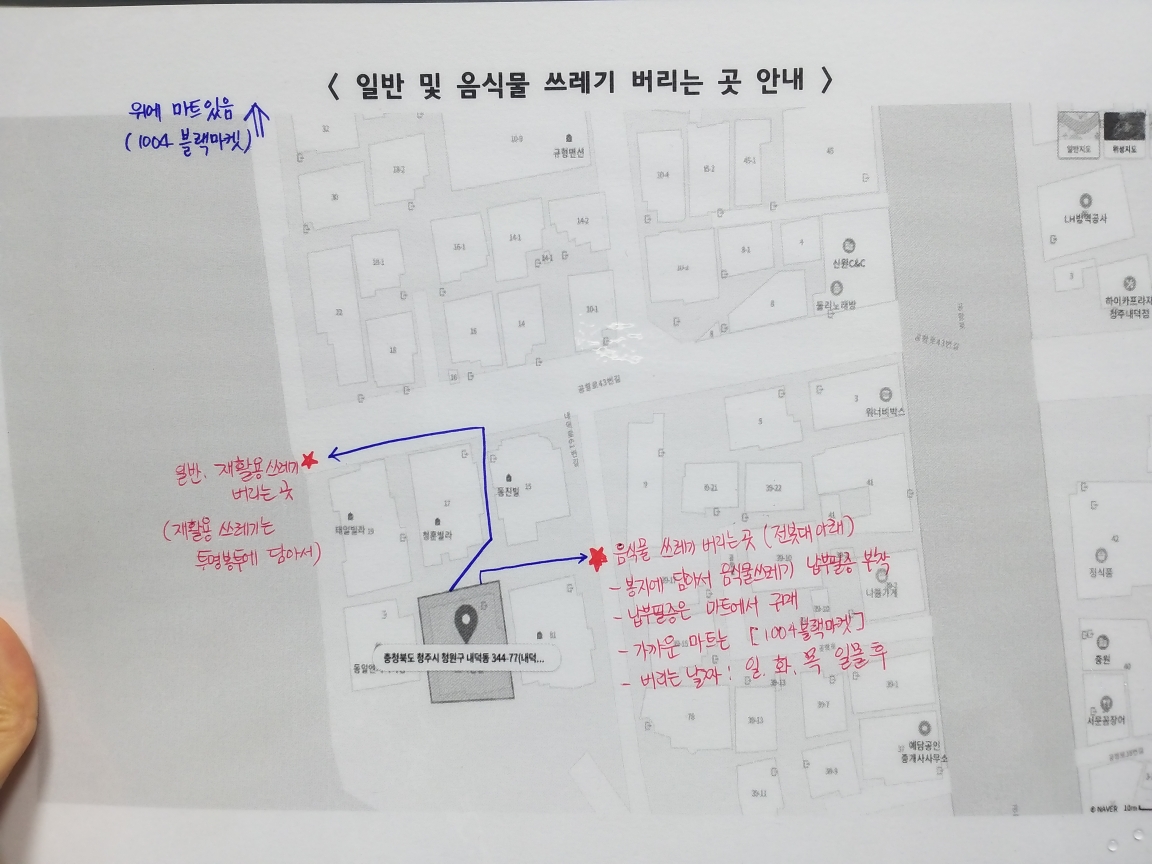 < 일반 및 음식물 쓰레기 버리는 곳 안내 >
위에 마트있음
(1004 블랙마켓)
32
10-9
규형맨션
일반지도
위성지도
45
45-1
10-4
18-2
30
LH방역공사
14-2
14-1
16-1
18-1
8-1
4
신원C&C
3
하이카프라자
청주내덕점
둘리노래방
8
10-1
21
18
16
14
공항로43번길
공항로43번길
3
워너비박스
9
일반, 재활용쓰레기
버리는 곳
(재활용 쓰레기는
투명봉투에 담아서)
태일빌라 19
17
청훈빌라
동진빌
15
41
42
정식품
음식물 쓰레기 버리는곳 (전봇대 아래)
- 봉지에 담아서 음식물쓰레기 납부필증 부착
- 납부필증은 마트에서 구매
- 가까운 마트는 [1004블랙마켓]
- 버리는 날짜 : 일. 화. 목 일몰 후
충청북도 청주시 청원구 내덕동 344-77(내덕...
81
나들가게
중원
서문곰장어
78
39-13
39-7
39-1
예담공인
중개사사무소
39-11
© NAVER 10m